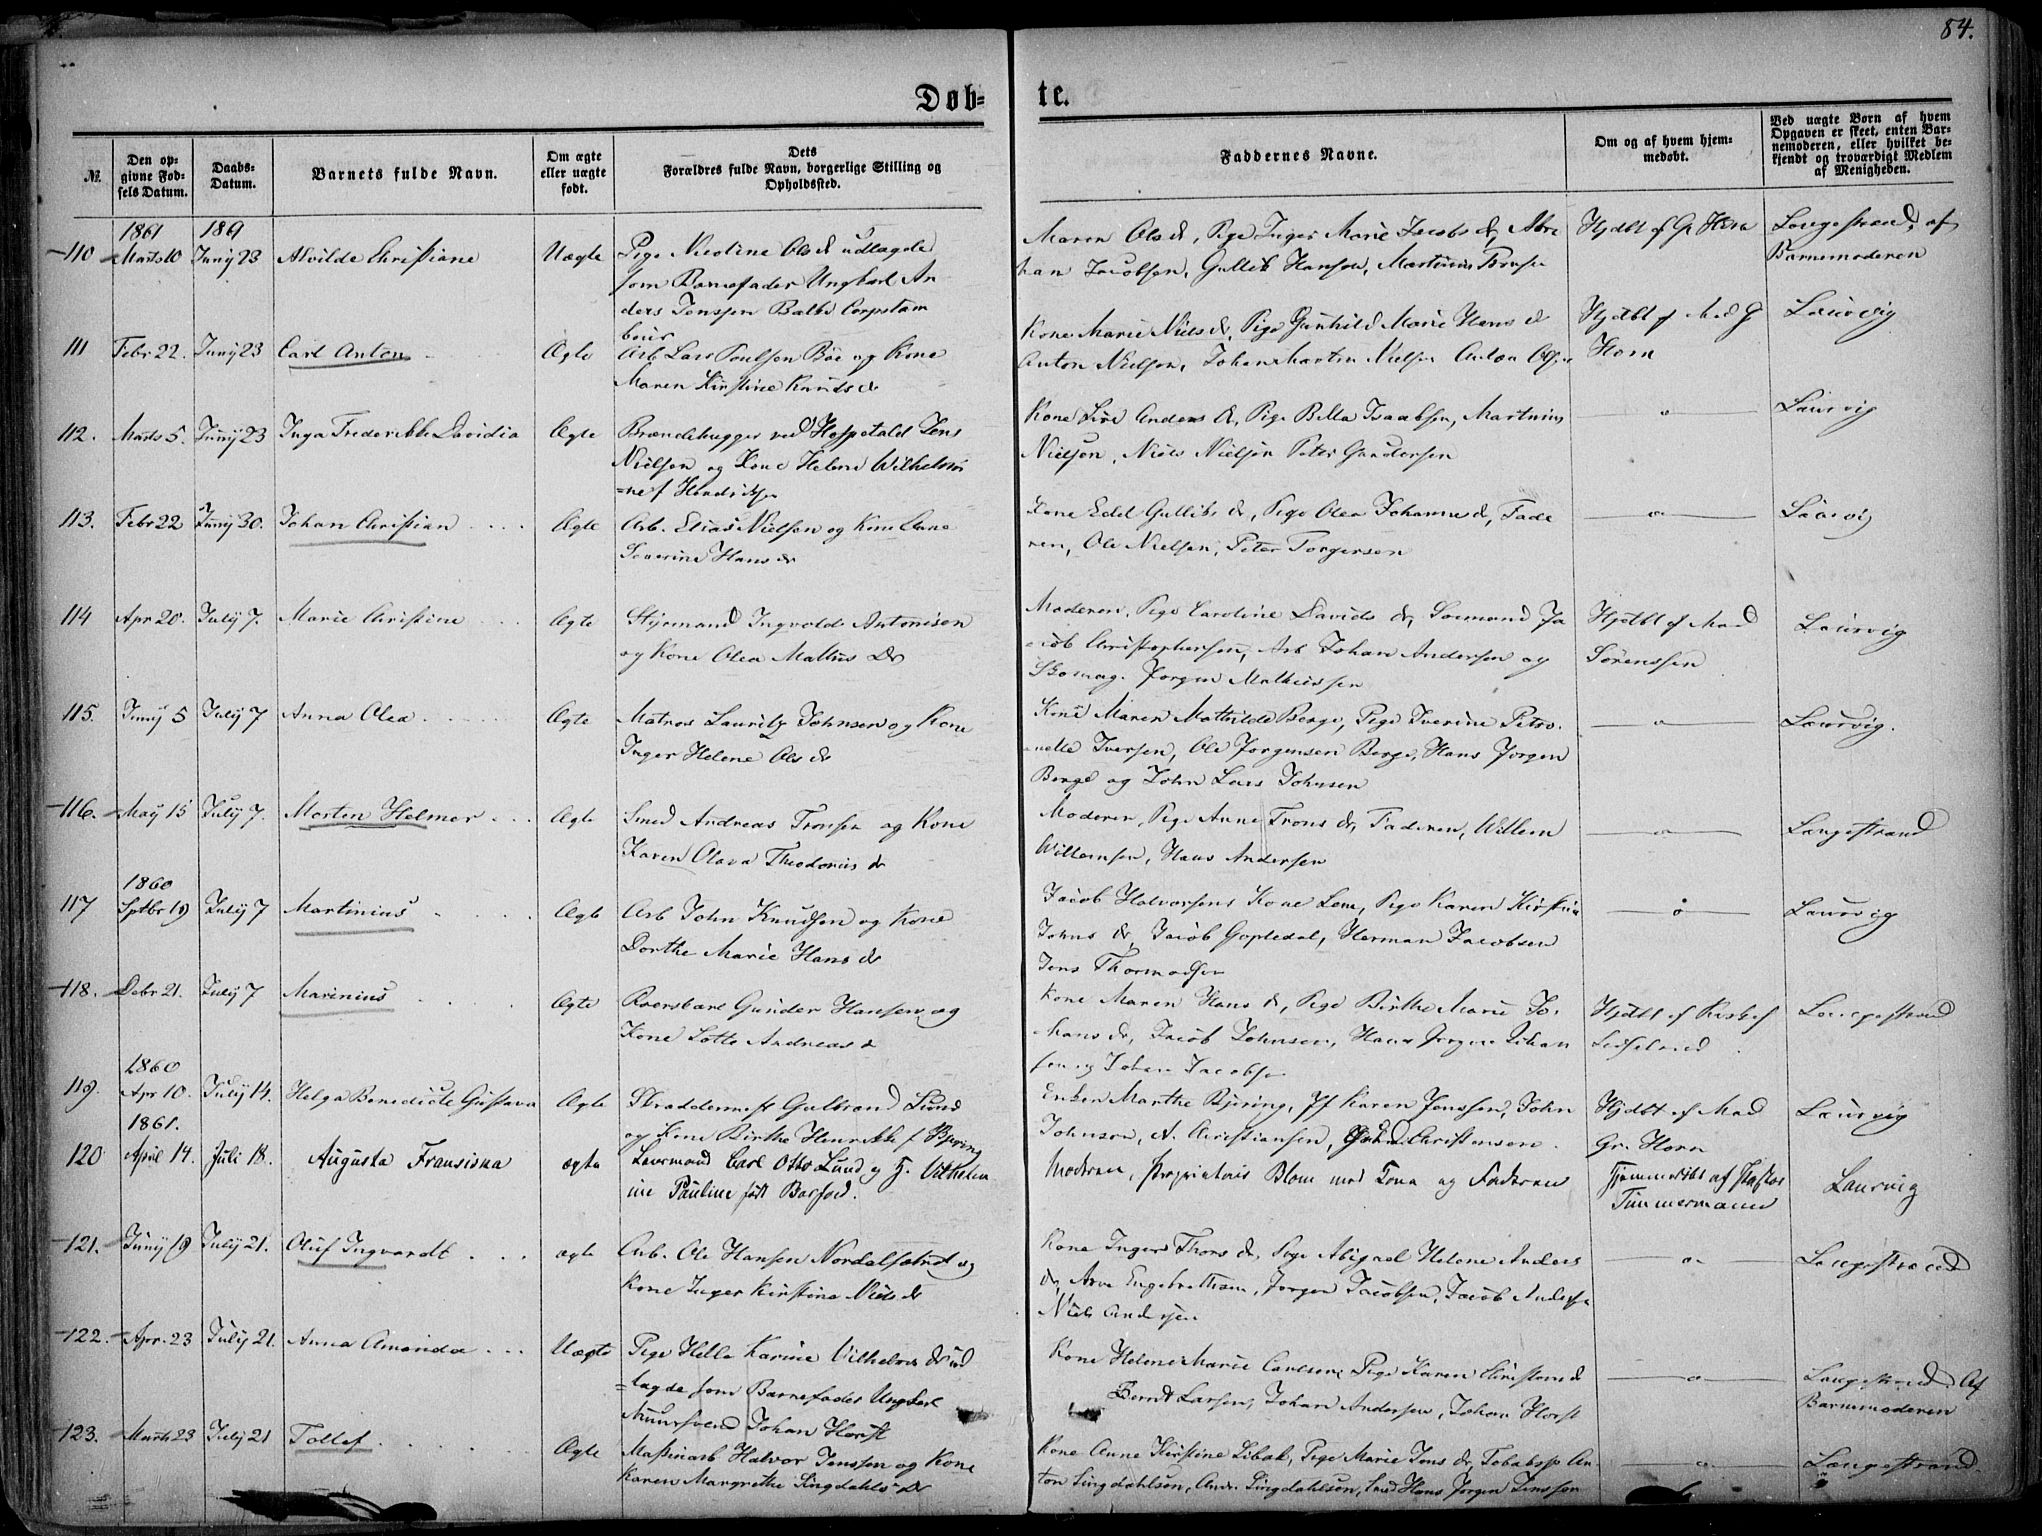 84.
Døb= te.
№
Den op-
givne Fød-
sels Datum.
Daabs-
Datum.
Barnets fulde Navn.
Om ægte
eller uægte
født.
Dets
Forældres fulde Navn, borgerlige Stilling og
Opholdssted.
Faddernes Navne.
Om og af hvem hjem-
medøbt.
Ved uægte Børn af hvem
Opgaven er skeet, enten Bar-
nemoderen, eller hvilket be-
kjendt og troværdigt Medlem
af Menigheden.
1861 1861
110 Marts 10 Juny 23 Alvilde Christiane Uægte Pige Nicoline Ols d udlagde
som Barnefader Ungkarl An
ders Jenssen Corpstam
bour
Maren Ols d, Pige Inger Marie Jacobs d, Abra
ham Jacobsen, Gullik Hansen, Martinus
Hjdbt af Gr Horn
Langestrand, af
Barnemoderen
111 Febr 22. Juny 23 Carl Anton Ægte Arb. Lars Poulsen Bøe og Kone
Maren Kirstine Knuds d
Kone Marie Niels d, Pige Gunhild Marie Hans d
Anton Nielsen, Johan Martin Nielsen Anton Olsen
Hjdbt af Mad G
Horn
Laurvig
112. Marts 5. Juny 23 Inga Frederikke Davidia Ægte Brændehugger ved Hospitalet Jens
Nielsen og Kone Helene Wilhelmi
=ne f Hendriksen
Kone Live Anders d, Pige Bella Isaaksen, Martinius
Nielsen, Niels Nielsen Peter Gundersen
— " —
Laurvig
113. Febr 22 Juny 30. Johan Christian Ægte Arb. Elias Nielsen og Kone Lane
Severine Hans d
Kone Edel Gulliks d, Pige Olea Johannes d, Fade
ren, Ole Nielsen, Peter Torgersen
— " —
Laurvig
114 Apr 20. July 7. Marie Christine Ægte Styrmand Ingvald Antonisen
og Kone Olea Mathis Dr
Moderen, Pige Caroline Davids d, Sømand Ja
cob Christophersen, Arb Johan Andersen og
Skomag. Jørgen Mathissen
Hjdbt af Mad
Sørenssen
Laurvig
115. Juny 5 July 7 Anna Olea Ægte Matros Lauritz Johnsen og Kone
Inger Helene Ols d
Kone Maren Mathilde Berge, Pige Iverine Petro
nelle Iversen, Ole Jørgensen Berge, Hans Jørgen
Berge og John Lars Johnsen
— " —
Laurvig.
116. May 15 July 7. Morten Helmer Ægte Smed Andreas Tronsen og Kone
Karen Olava Theodorius d
Moderen, Pige Anne Trons d, Faderen, Willem
Willemsen, Hans Andersen
— " —
Langestrand
1860
117 Sptbr 19 July 7 Martinius Ægte Arb John Knudsen og Kone
Dorthe Marie Hans d
Jacob Halvorsens Kone Lene, Pige Karen Kirstine
Johns d, Jacob Gopledal, Herman Jacobsen
Jens Thormodsen
— " —
Laurvig
118. Debr 21. July 7 Marinius Ægte Gunder Hansen og
Kone Lotte Andreas d
Kone Maren Hans d, Pige Birthe Marie Jo-
hans d, Jacob Johnsen, Hans Jørgen Johan
sen og Johan Jacobsen
Hjdbt af
Langestrand
1860
119. Apr 10. July 14. Helga Benedicte Gustava Ægte Skræddermest Gulbrand Lund
og Kone Birthe Henrikke f Bjøring
Enken Marthe Bjøring, Jf Karen Jenssen, John
Johnsen, A. Christiansen, Christensen.
Hjdbt af Mad
Gr. Horn
Laurvig
1861.
120 April 14. Juli 18. Augusta Fransiska ægte Lund og H. Vilhelm
ine Pauline født Barfoed.
Moderen, Proprietair Blom med Kone og Faderen
Hjemmedøbt af Pastor
Timmermann
Laurvig
121. Juny 19 July 21. Oluf Ingvardt ægte Arb. Ole Hansen og
Kone Inger Kirstine Niels d
Kone Inger Thors d, Pige Abigael Helene Anders
d, Arve Engebrettsen, Jørgen Jacobsen, Jacob Andersen
Niels Andersen
— " —
Langestrand
122. Apr. 23 July 21. Anna Amanda Uægte Pige Helle Karine Vilhelms d ud
=lagde som Barnefader Ungkarl
Muursvend Johan Horst
Kone Helene Marie Carlsen, Pige Karen Christens d
Berndt Larsen, Johan Andersen, Johan Horst
— " —
Langestrand Af
Barnemoderen
123. Marts 23 July 21 Tollef Ægte Maskinarb Halvor Jenssen og Kone
Karen Margrethe Lingdahls Dr
Kone Anne Kirstine Libak, Pige Marie Jens d, Tobaksp An-
ton Lingdahlsen, Andr. Lingdahlsen, Smed Hans Jørgen Jenssen
— " —
Langestrand.